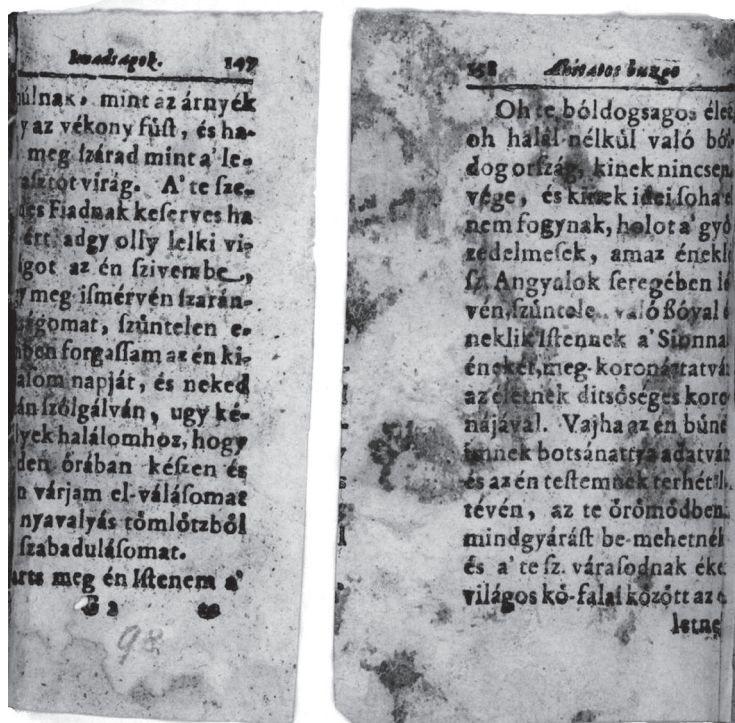 Imadságok. 147
múlnak, mint az árnyék
y az vékony fúſt, és ha-
meg ſzárad mint a' le-
virág. A' te ſze-
des Fiadnak keſerves ha
ért, adgy olly lelki vi-
ágot az én ſzivembe,
y meg iſmérvén ſzarán-
ságomat, ſzûntelen e-
mben forgaſſam az én ki-
alom napját, és neked
án ſzolgálván, ugy ké-
lyek halálomhoz, hogy
den órában kéſzen és
n várjam el-váláſomat
nyavalyás tömlôtzbôl
ſzabaduláſomat.
arts meg én Iſtenem a'
G 2
98
158 Áhitatos buzgo
Oh te bóldogsagos élet
oh halál nélkûl való ból-
dog orſzág, kinek nincsen
vége, és kinek idei ſoha
nem fogynak, holot a' gyô
zedelmeſek, amaz énekl
ſz. Angyalok ſeregében lé
vén, ſzûntele való ßóval é
neklik Iſtennek a' Sionna
éneket, meg-koronáztatván
az életnek ditsôséges koro
nájával. Vajha az én bûne
imnek botsánattya adatván
és az én teſtemnek terhét
tévén, az te ôrômôdben
mindgyáráſt be-mehetnék
és a' te ſz. váraſodnak éke
világos kô-falai kôzôtt az é
letne